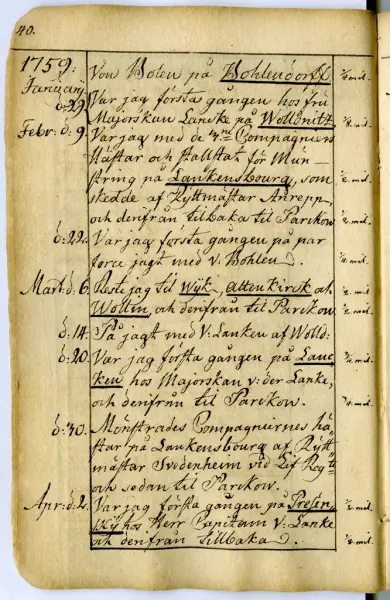 40.
1759: Von Bolen på Bohlendorff ½ mil.
Januarij
d: 29. Var jag första gången hos fru
Majorskan Lancke på Wolldnitz ¼ mil.
Febr: d: 9. Var jag med de 4 Compagniers
Hästar och Stallstat för Mün-
string på Lanckensbourg, som ½ mil.
skedde af Ryttmästar Anrepp,
och derifrån tilbaka til Parckow ½ mil.
d: 22. Var jag första gången på par
force jagt med v: Bohlen d. ¼ mil.
Mart: d: 6. Reste jag til Wijk, Altenkirck at ½ mil.
Wollin, och derifrån til Parckow ½ mil.
d: 14. På jagt med V: Lanken af Wolld:
d: 20. Var jag första gången på Lanc
ken hos Majorskan v: der Lanke,
och derifrån til Parckow.
d: 30. Mönstrades Compagniernes hä-
star på Lankensbourg af Rytt
mästar Svedenheim vid Lif Reg:
och sedan til Parckow. ½ mil.
Apr: d: 2. Var jag första gången på Presen ½ mil.
hos Herr Capitain v: Lanke
och derifrån tillbaka d. ½ mil.